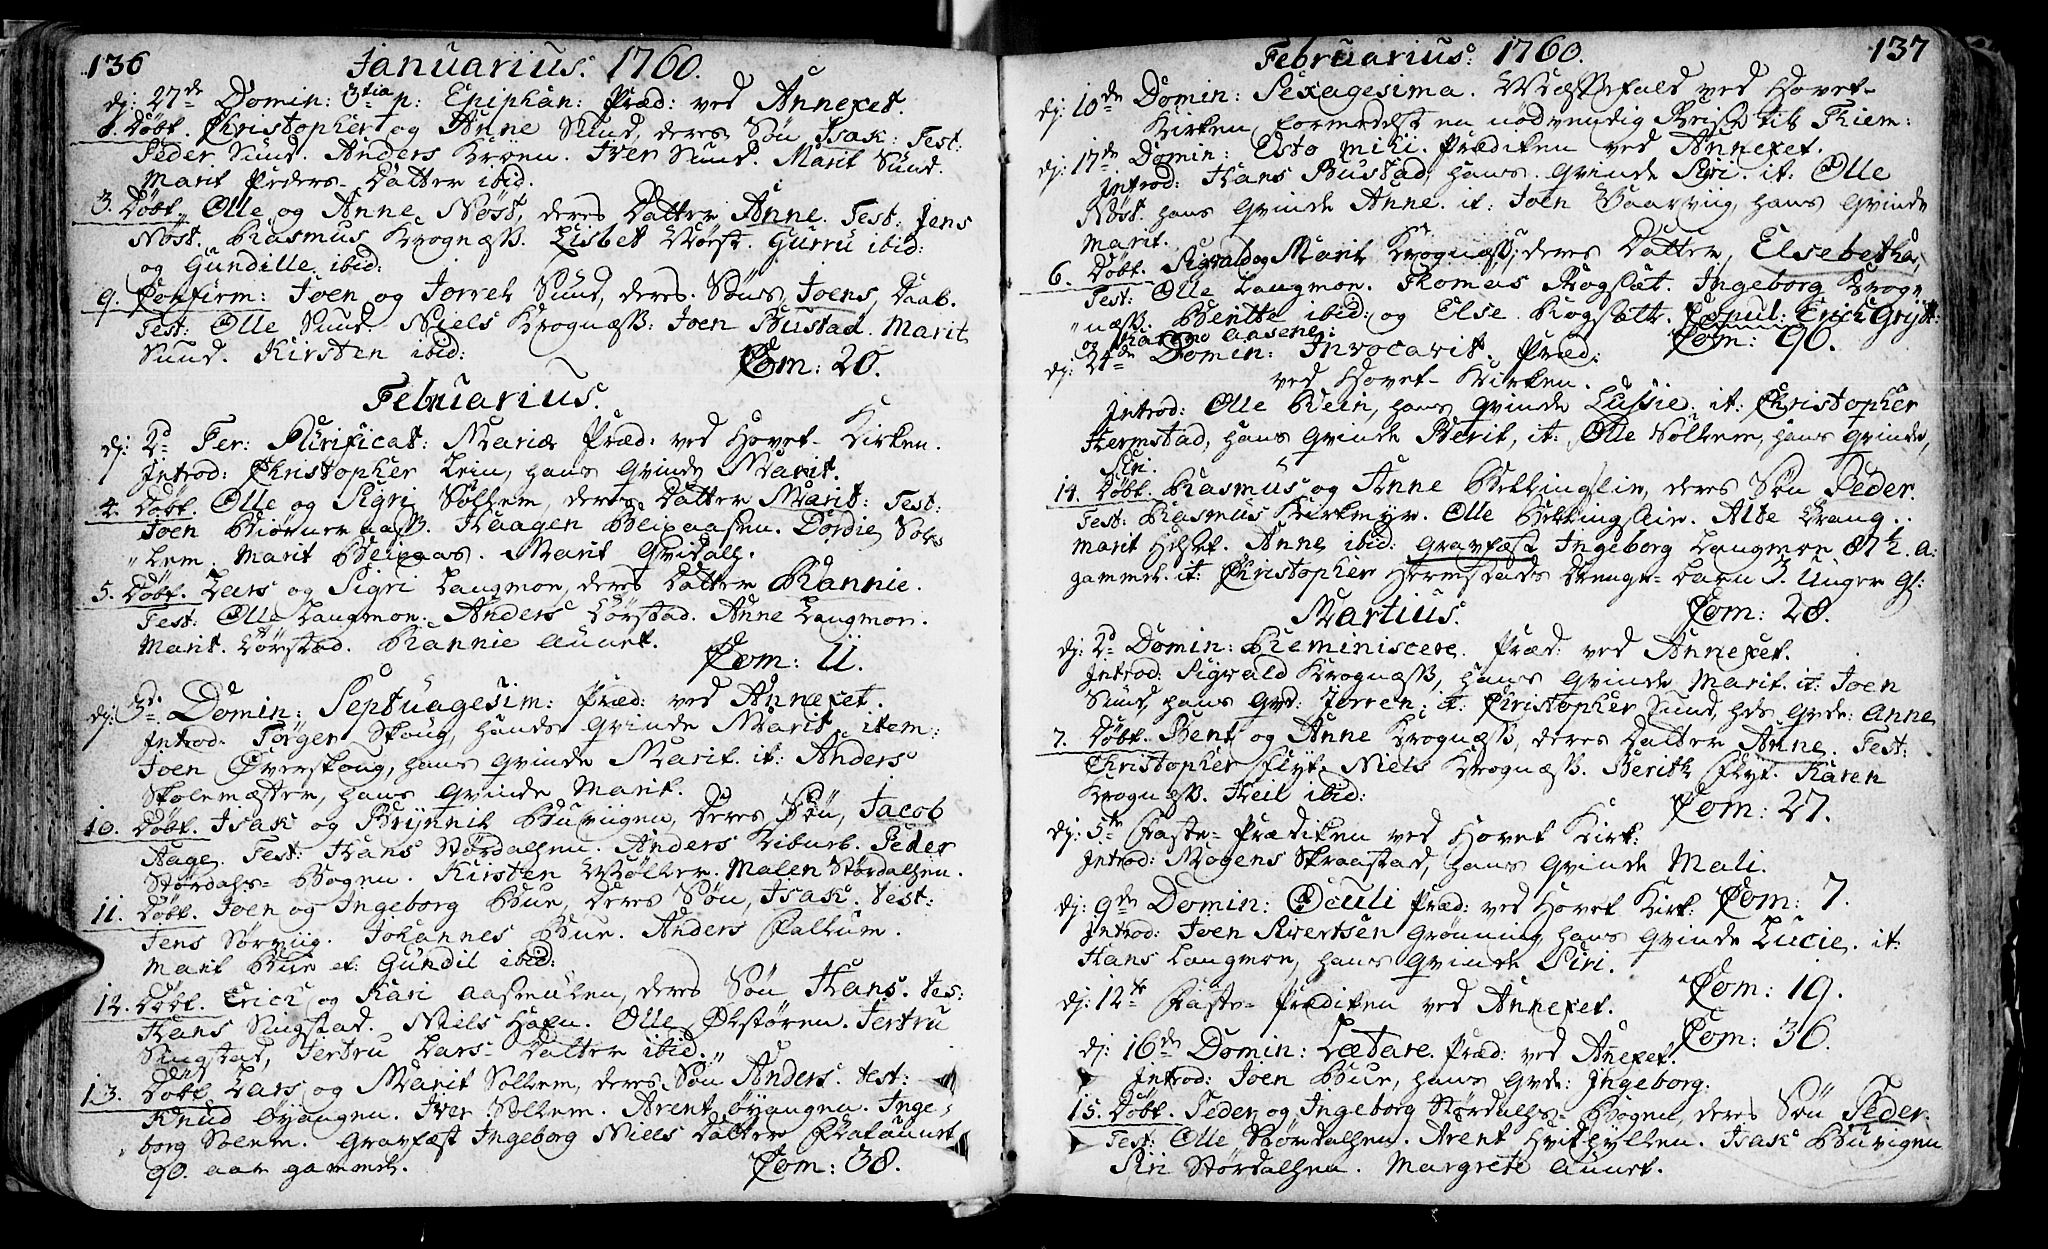 136
Januarius. 1760.
dj: 27de Domin: 3tia p: Epiphan: Præd: ved Annexet.
8. Døbt. Christopher og Anne Sund, deres Søn Isak: Test:
Peder Sund. Anders Krøen. Iver Sund. Marit Sund.
Marit Peders-Datter ibid.
3. Døbt. Olle og Anne Nøst, deres Datter Anne. Test: Jens
Nøst. Rasmus Krognæss. Lisbet Nøst. Gurru ibid:
og Gundille ibid:
9. Confirm: Joen og Jorren Sund, deres Søn Joens Daab.
Test: Olle Sund. Niels Krognæss: Joen Bustad. Marit
Sund. Kirsten ibid:
Com: 20.
Februarius.
dj: 2d Fer: Purificat: Mariæ Præd: ved Hovet-Kirken.
Introd: Christopher Lein, hans Qvinde Marit.
4. Døbt. Olle og Sigri Solhem, deres Datter Marit: Test:
Joen Biørneraass. Haagen Bleixaasen. Dordie Sol-
"hem. Marit Bleixaas. Marit Qvidall.
5. Døbt. Lars og Sigri Langmoe, deres Datter Rannie.
Test: Olle Langmoe. Anders Børstad. Anne Langmoe.
Marit Børstad. Rannie Aunet.
Com: 11.
dj: 3de Domin: Septuagesim: Præd: ved Annexet.
Introd: Tørger Skoug, hands Qvinde Marit, item:
Joen Overskoug, hans Qvinde Marit. it: Anders
Skolemester, hans Qvinde Marit.
10. Døbt. Isak og Brynnil Buviigen, deres Søn, Jacob
Aage. Test: Hans Størdalsen. Anders Kibusb. Peder
Størdals-Bogen. Kirsten Møller. Malen Størdalsen.
11. Døbt. Joen og Ingeborg Bue, deres Søn, Isak. Test:
Jens Sørviig. Johannes Bue. Anders Saltum.
Marit Bue et Gundil ibid:
12. Døbt. Erick og Kari Aasmulen, deres Søn Hans. Tes:
Hans Singstad. Niels Hafn. Olle Økstøren. Jertru
Singstad, Jertru Lars-Datter ibid.
13. Døbt Lars og Marit Solhem, deres Søn Anders. Test:
Knud Øyangen. Iver Solhem. Arent Øyangen. Inge-
borg Solem. Gravfæst Ingeborg Niels Datter Frataunet
90. aar gammel.
Com: 38.
Februarius: 1760.
137
dj: 10de Domin: Sexagesima. Messefald ved Hovet-
Kirken, formedelst en nødvendig Reise til Thiem:
dj: 17de Domin: Esto mihi. Prædiken ved Annexet.
Introd: Hans Bustad, hans Qvinde Siri. it: Olle
Nøst. hans Qvinde Anne. it: Joen Vaarviig, hans Qvinde
Marit.
6. Døbt. Sigvald og Marit Krognæss, deres Datter, Elsebetha,
Test: Olle Langmoe. Thomas Rogstat. Ingeborg Krog-
"næss. Bentte ibid: og Else Rogstatt. Copul: Erick Grytt:
og Karen Aasene:
Com: 90.
dj: 24de Domin: Invocavit. Præd:
ved Hovet-Kirken.
Introd: Olle Vein, hans Qvinde Lussie. it: Christopher
Hermstad, hans Qvinde Berit, it: Olle Solhem, hans Qvinde,
Siri.
14. Døbt. Rasmus og Anne Kellingslie, deres Søn Peder.
Test: Rasmus Kirkmyr. Olle Kellingslie. Alte Krang.
Marit Helset. Anne ibid: Gravfæst Ingeborg Langmoe 87½. A:
gammel. it: Christopher Hermstads Drenge-barn 3. Uuger gl:
Martius.
Com: 28.
dj: 2d Domin: Reminiscere. Præd: ved Annexet.
Introd: Sigvald Krognæss, hans Qvinde Marit. it: Joen
Sund, hans Qvd: Jorren. it: Christopher Sund, hds Qvde: Anne
7. Døbt. Bent og Anne Krognæss, deres Datter Anne. Test:
Christopher Flyt. Niels Krognæss. Berith Flyt. Karen
Krognæss. Heil ibid:
Com: 27.
dj: 5te Faste-Prædiken ved Hovet Kirk:
Introd: Mogens Skraastad, hans Qvinde Mali.
dj: 9de Domin: Oculi Præd: ved Hovet Kirk: Com: 7.
Introd: Joen Sivertsen Grønning, hans Qvinde Lucie. it:
Hans Langmoe, hans Qvinde Siri.
Com: 19.
dj: 12te Faste-Prædiken ved Annexet.
Com: 36.
dj: 16de Domin: Lætare. Præd: ved Anexet.
Introd: Joen Bue, hans Qvde: Ingeborg.
15. Døbt. Peder og Ingeborg Størdahls-Bogen, deres Søn Peder.
Test: Olle Størdalsen. Arent Hvithyllen. Isak Buvigen
Siri Størdalsen. Margrete Aunet.